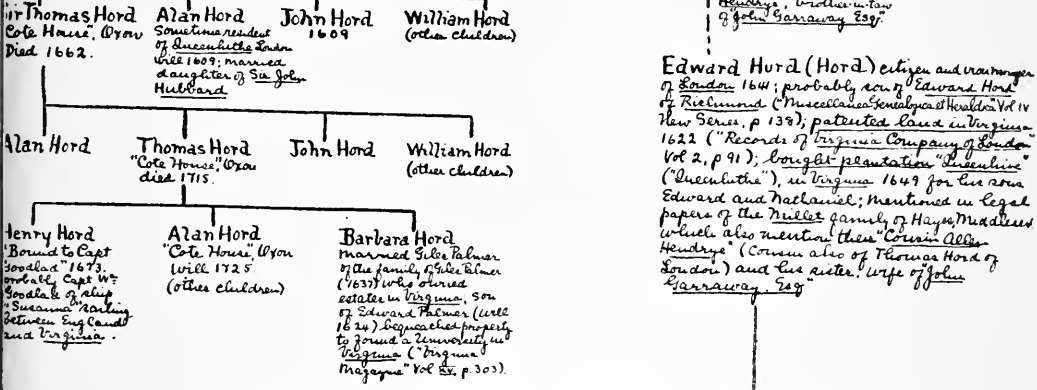 ir Thomas Hord
"Cote House", Oxon
Died 1662.
Alan Hord
Sometime resident
of Queenhithe London
Will 1609; married
daughter of Sir John
Hubbard
John Hord
1609
William Hord
(other children)
Hendrye", brother-in-law
of "John Garraway Esq"
Alan Hord
Thomas Hord
"Cote House", Oxon
died 1715.
John Hord
William Hord
(other children)
Henry Hord
"Bound to Capt
Goodlad" 1673.
probably Capt Wm
Goodlad of ship
"Susanna" sailing
between England
and Virginia.
Alan Hord
"Cote House" Oxon
Will 1725
(other children)
Barbara Hord
married Giles Palmer
of the family of Giles Palmer
(1637) who owned
estates in Virginia, son
of Edward Palmer (will
1624) bequeathed property
to found a University in
Virginia ("Virginia
Magazine" Vol IV, p.303).
Edward Hurd (Hord) citizen and ironmonger
of London 1641; probably son of Edward Hord
of Richmond ("Miscellanea Genealogica et Heraldica" Vol IV
New Series, p 138); patented land in Virginia
1622 ("Records of Virginia Company of London"
Vol 2, p 91); bought plantation "Queenhive"
("Queenhithe"), in Virginia 1649 for his sons
Edward and Nathaniel; mentioned in legal
papers of the Millet family of Hayes, Middlesex
which also mention their "Cousin Allen
Hendrye" (Cousin also of Thomas Hord of
London") and his sister, wife of "John
Garraway. Esq"